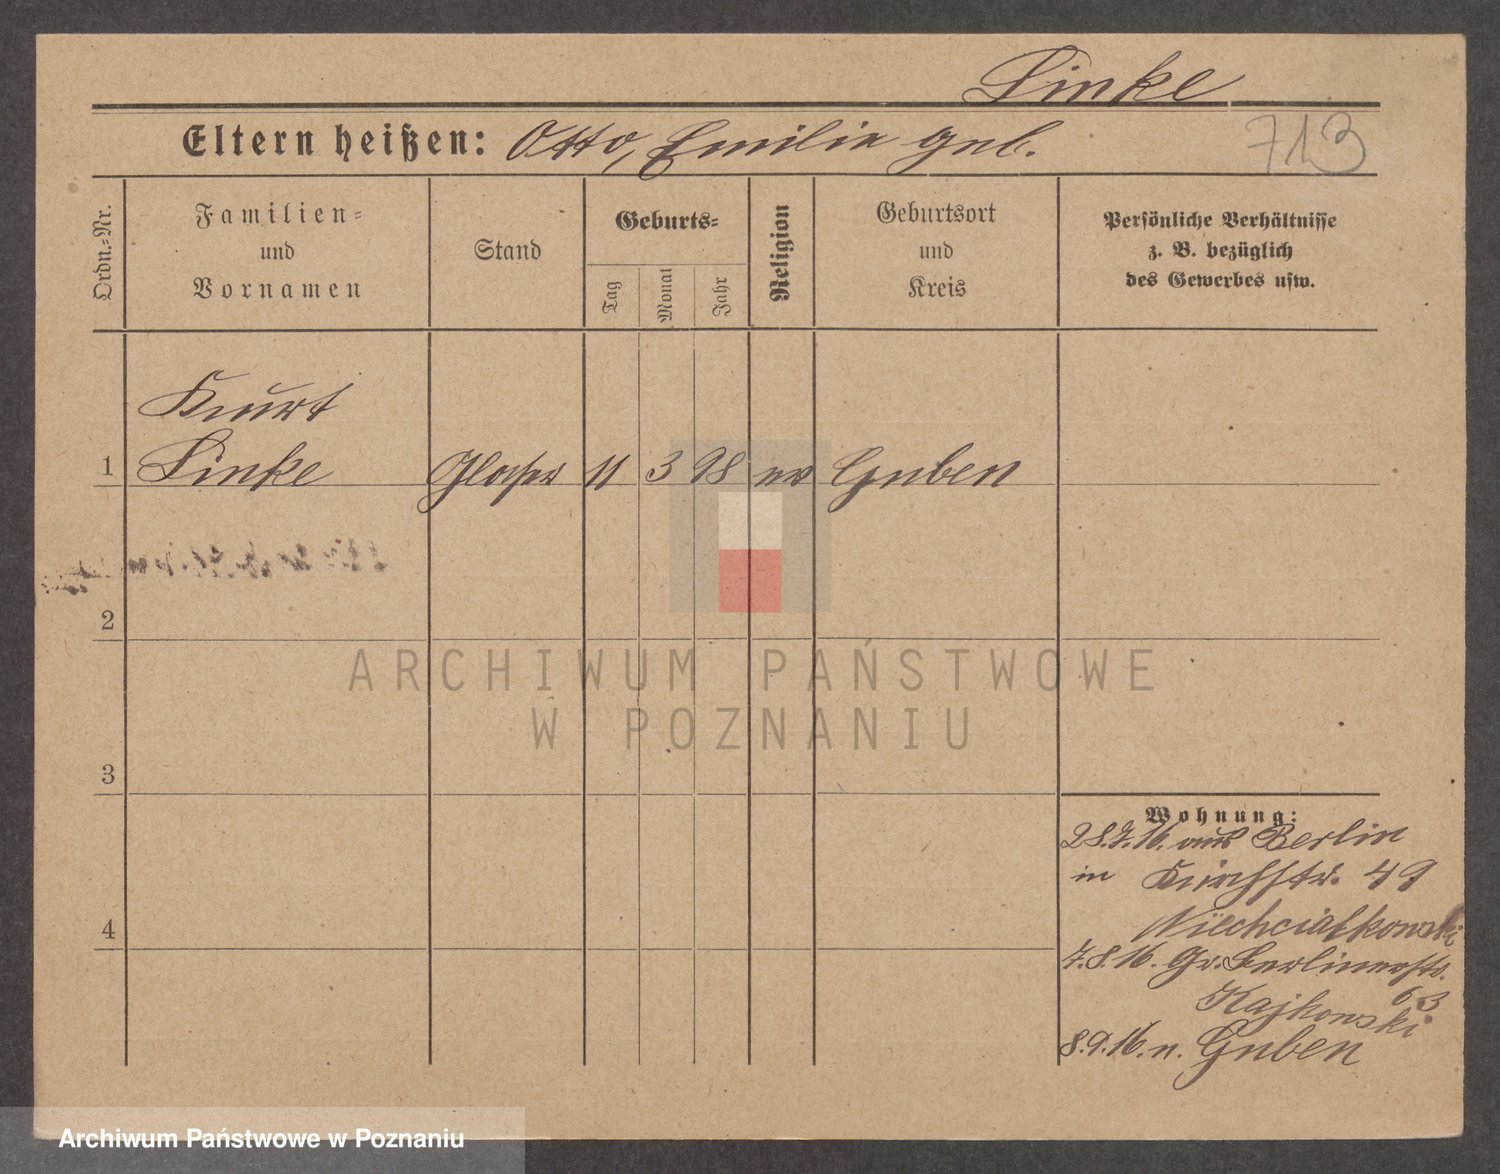 Linke
Eltern heißen: Otto, Emilie geb.
713
Ordn.-Nr.
Familien-
und
Vornamen
Stand
Geburts-
Tag
Monat
Jahr
Religion
Geburtsort
und
Kreis
Persönliche Verhältnisse
z. B. bezüglich
des Gewerbes usw.
Kurt
1 Linke Glaser 11 3 98 ev Guben
2
ARCHIWUM PAŃSTWOWE
W POZNANIU
3
Wohnung:
28.7.16. aus Berlin
in Kirchstr. 49
4
Niechcialkowski
7.8.16. Gr. Berlinerstr.
63
Kajkowski
8.9.16. n. Guben
Archiwum Państwowe w Poznaniu